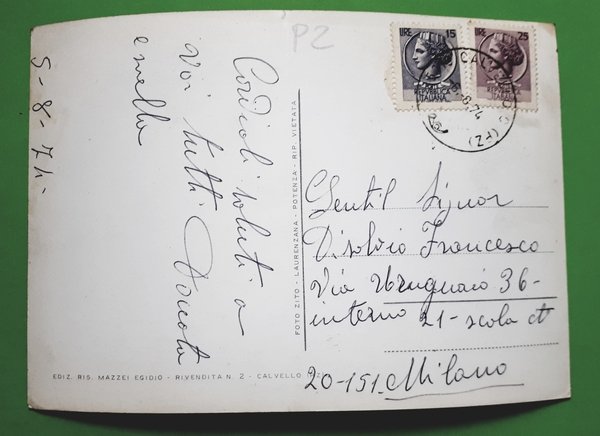 P2
LIRE 15
REPUBBLICA
ITALIANA
LIRE 25
REPUBBLICA
ITALIANA
5-8-74
Cordiali saluti a
voi tutti Donota
e nella
FOTO ZITO - LAURENZANA - POTENZA - RIP. VIETATA
Gentil Signor
Disolvio Francesco
Via Uruguaio 36-
interno 21-scola
20-151. Milano
EDIZ. RIS. MAZZEI EGIDIO - RIVENDITA N. 2 - CALVELLO